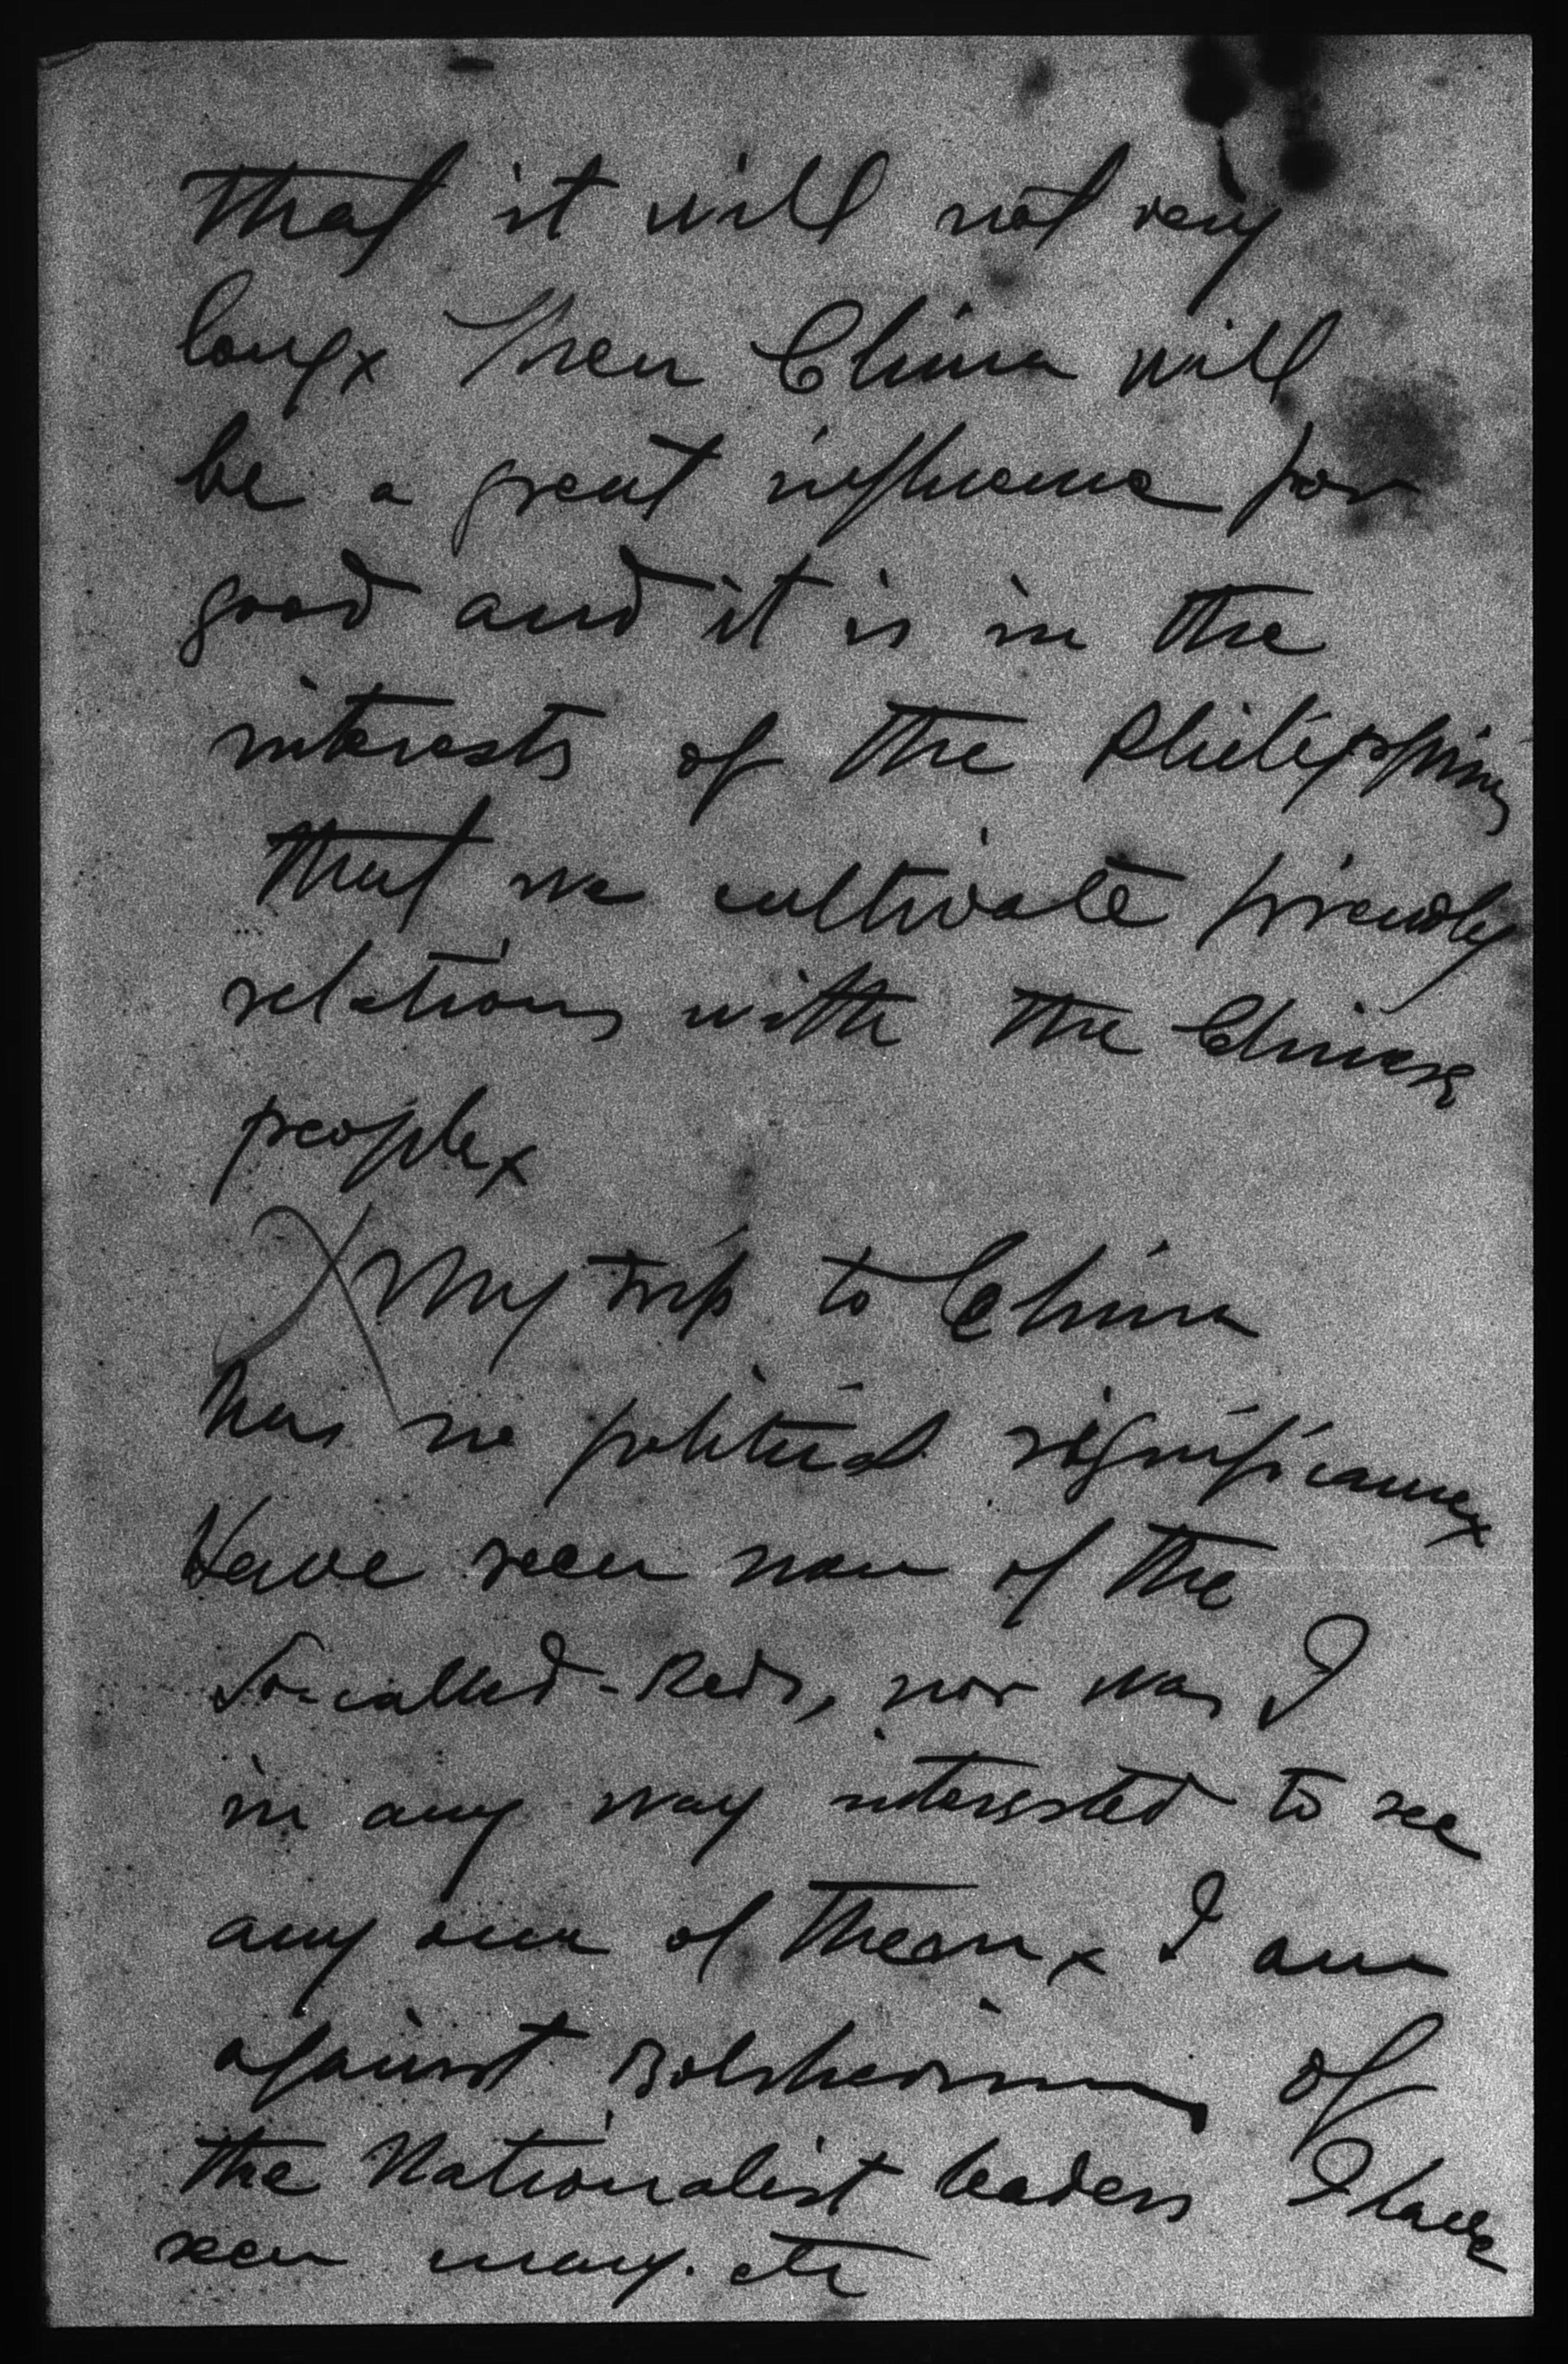 that it will not very
long x Then China will
be a great influence for
good and it is in the
interests of the Philippines
that we cultivate friendly
relations with the Chinese
people x
X My trip to China
has no political significance x
Have seen none of the
So-called-Reds, nor was I
in any way interested to see
any one of them x I am
against Bolshevism of
the Nationalist leaders I have
seen many. etc